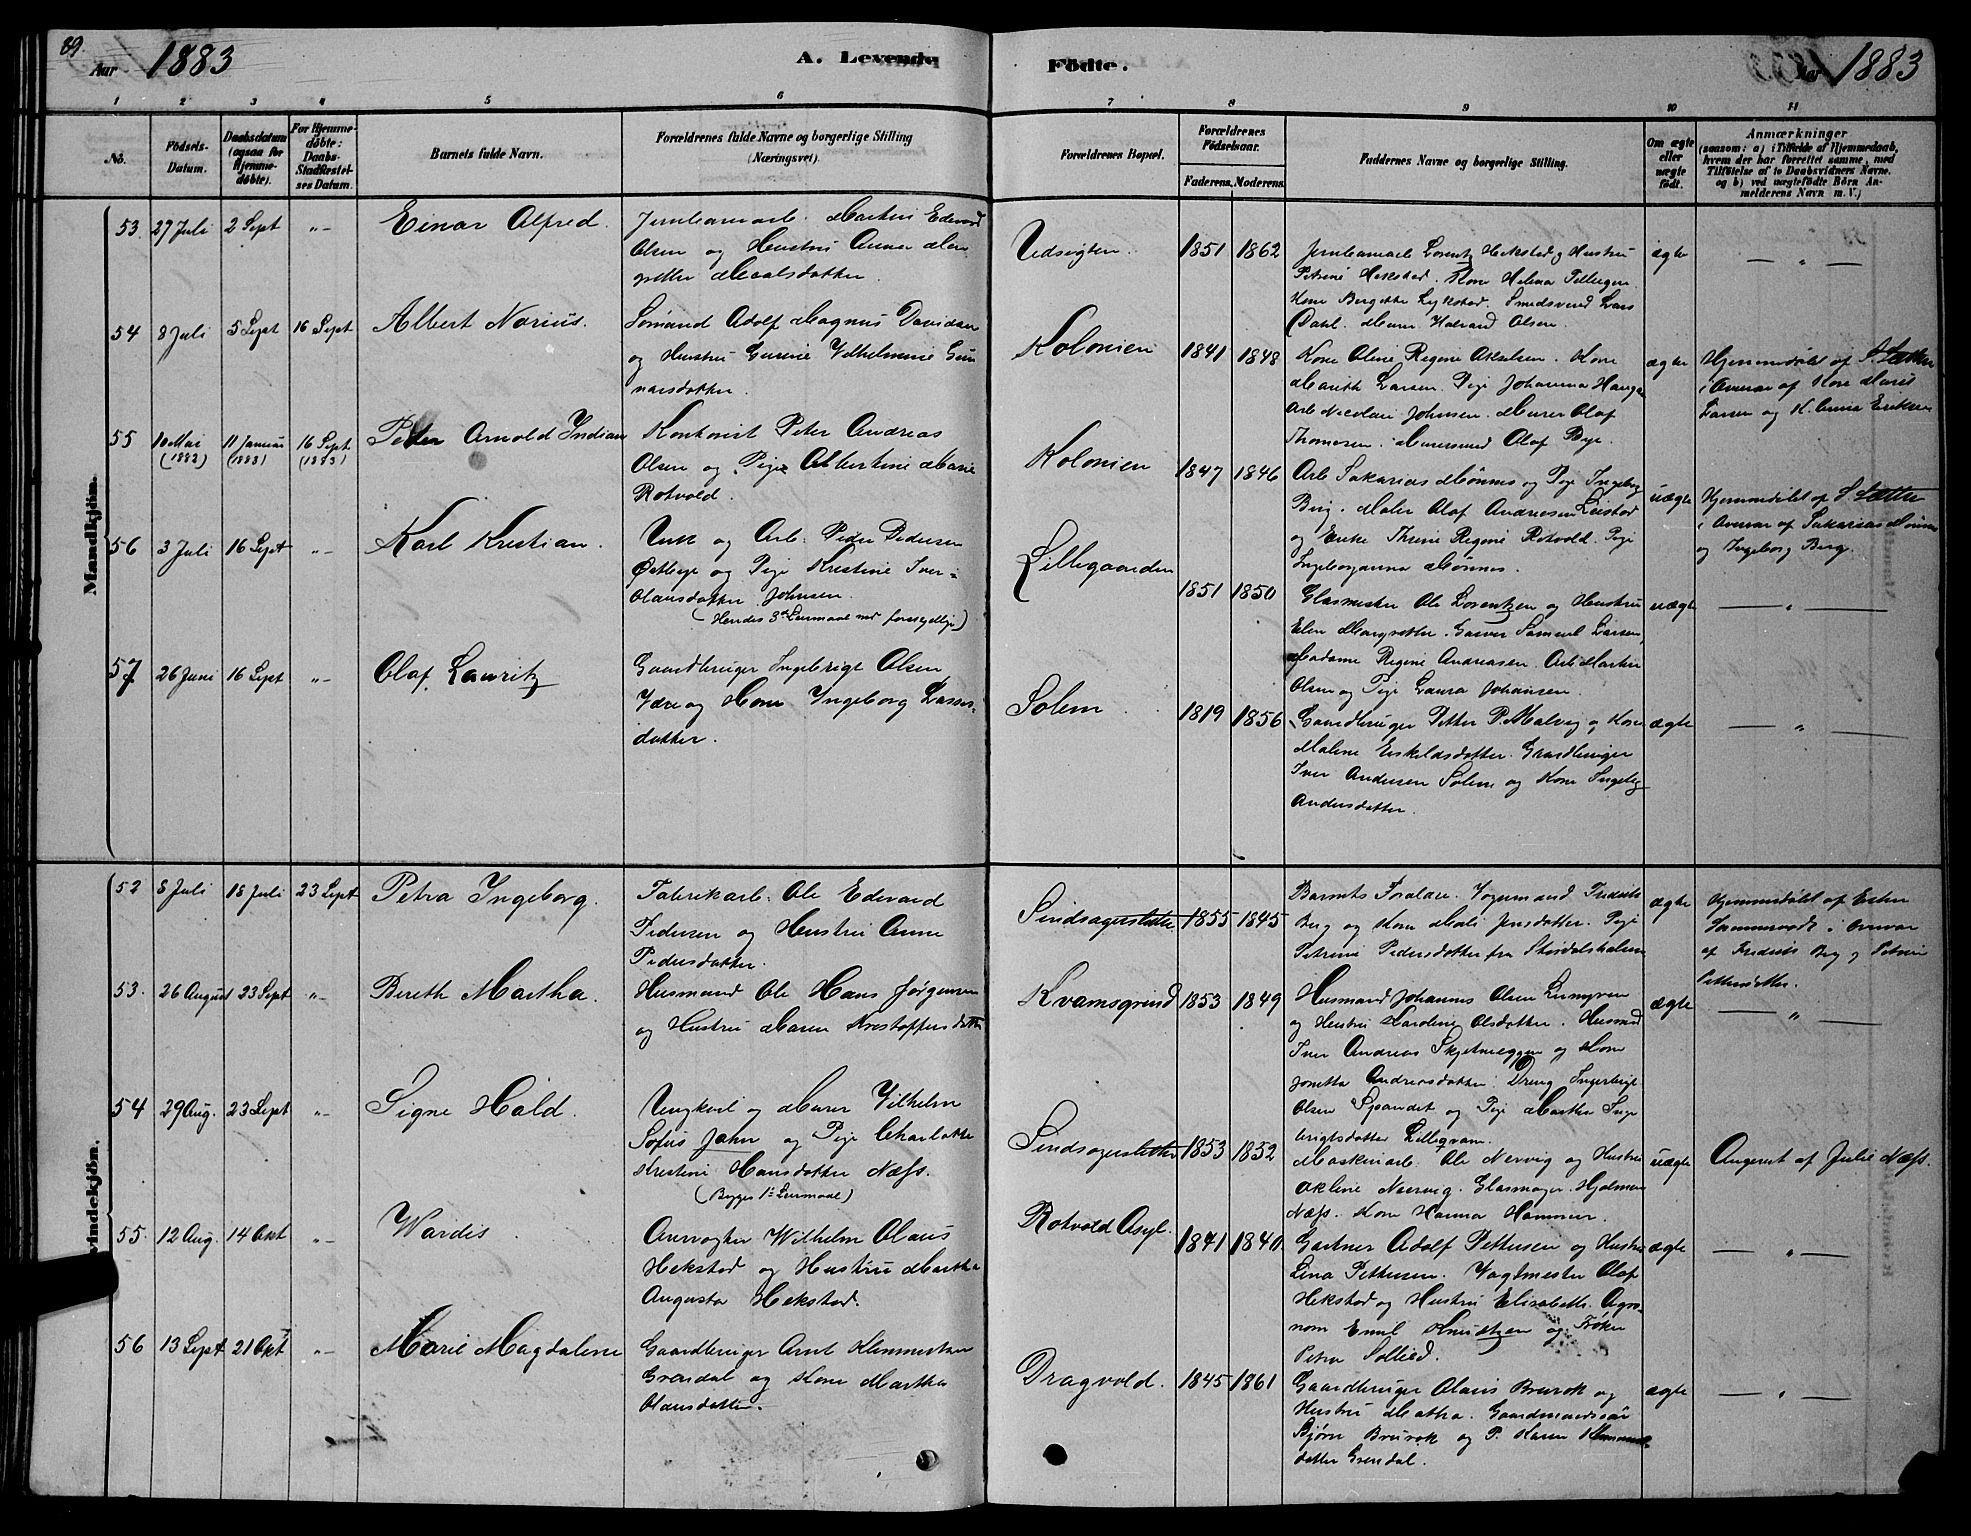 89.
Aar 1883
A. Levende Födte.
Aar 1883
1 2 3 4 5 6 7 8 9 10 11
No.
Födsels-Datum.
Daabsdatum (ogsaa for Hjemme-döbte).
For Hjemme-döbte: Daabs-Stadfæstel-ses Datum.
Barnets fulde Navn.
Forældrenes fulde Navne og borgerlige Stilling (Næringsvei).
Forældrenes Bopæl.
Forældrenes Födselsaar.
Faderens. Moderens.
Faddernes Navne og borgerlige Stilling.
Om ægte eller uægte födt.
Anmærkninger
(saasom: a) i Tilfælde af Hjemmedaab,
hvem der har forrettet samme, med
Tilföielse af to Daabsvidners Navne.
og b) ved uægtefödte Börn An-
melderens Navn m. V.)
Mandkjön.
53. 27 Juli 2 Sept "- Einar Alfred.
Jernbanearb. Martin Edvard
Olsen og Hustru Anna Mar
grethe
Udsigten. 1851 1862
Jernbanearb Lorentz Hekstad og Hustru
Petrine Hekstad. Kone Helena
Kone Bergitte Lykstad. Smedsvend Lars
Dahl. Murer Halvard Olsen.
ægte — " —
54 8 Juli 5 Sept 16 Sept Albert Narius.
Sömand Adolf Magnus Davidsen
og Hustru Gurine Vilhelmine Gun
narsdatter.
Kolonien 1841 1848
Kone Oline Regine Akselsen. Kone
Marith Larsen. Pige Johanna Hauga
Arb Nicolai Johnsen. Murer Olaf
Thomesen. Murersvend Olaf Bye.
ægte
Hjemmedöbt af S. Sættem
i Overvær af Kone Marit
Larsen og K. Anna Eriksen
55 10 Mai (1882) 11 Januar (1883) 16 Sept (1883) Petter Arnold Indian
Kontorist Peter Andreas
Olsen og Pige Albertine Marie
Rotvold.
Kolonien 1847 1846
Arb Sakarias Mönnes og Pige Ingeborg
Berg. Maler Olaf Andreasen Leistad
og Enke Thrine Regine Rotvold. Pige
Ingeborganna Mönnes.
uægte
Hjemmedöbt af S. Sættem
i Overvær af Sakarias Mönnes
og Ingeborg Berg.
56 3 Juli 16 Sept "- Karl Kristian.
Unk og Arb. Peder Pedersen
Østbye og Pige Kristine Iver-
Olausdatter Johnsen.
(Hendes 3die Leiermaal med forskjellige)
Lillegaarden 1851 1850
Glasmester Ole Lorentzen og Hustru
Elen Margrethe. Garver Samuel Larsen,
Madame Regine Andreasen. Arb Martin
Olsen og Pige Laura Johansen.
uægte — " —
57 26 Juni 16 Sept "- Olaf Lauritz
Gaardbruger Ingebrigt Olsen
Være og Kone Ingeborg Lasses-
datter.
Solem 1819 1856
Gaardbruger Petter P. Malvig og Kone
Malene Eskildsdatter. Gaardbruger
Iver Andersen Solem og Kone Ingeborg
Andersdatter.
ægte — " —
Kvindekjön.
52 8 Juli 18 Juli 23 Sept Petra Ingeborg.
Fabrikarb. Ole Edvard
Pedersen og Hustru Anne
Pedersdatter.
Sindsagersletten 1855 1845
Barnets Forældre. Vognmand Frederik
Berg og Kone Mali Jensdatter. Pige
Petrine Pedersdatter fra Stördalshalsen
ægte
Hjemmedöbt af Esten
i Overvær
af Frederik Berg og Petrine
Pettersdatter.
53. 26 August 23 Sept "- Bereth Martha.
Husmand Ole Hans Jørgensen
og Hustru Maren Kristoffersdatter
Kvamsgrind 1853 1849
Husmand Johannes Olsen
og Hustru Hardine Olsdatter. Husmd
Iver Andreas og Kone
Jonetta Andreasdatter. Dreng Ingebrigt
Olsen Spandet og Pige Martha Inge
brigtsdatter
ægte — " —
54 29 Aug. 23 Sept "- Signe Hald.
Ungkarl og Murer Vilhelm
Sofus Jahn og Pige Charlotte
Kristine Hansdatter Næss.
(Begges 1ste Leiermaal)
Sindsagersletten 1853 1852
Maskinarb. Ole Nervig og Hustru
Okline Nervig. Glasmager Hjalmar
Næss. Kone Hanna Hammer.
uægte
Angivet af Julie Næss.
55. 12 Aug. 14 Okt "- Wardis.
Opvogter Wilhelm Olaus
Hekstad og Hustru Martha
Augusta Hekstad.
Rotvold Asyl. 1841 1840.
Gartner Adolf Pettersen og Hustru
Lina Pettersen. Vagtmester Olaf
Hekstad og Hustru Elisabeth. Agro-
nom Emil Knudtzen og Frøken
Petra Sollied.
ægte — " —
56 13 Sept 21 Okt "- Marie Magdalene
Gaardbruger Arnt Klemmetsen
Grendal og Kone Martha
Olausdatter.
Dragvold. 1845 1861
Gaardbruger Olaus Brurok og
Hustru Martha. Gaardmandssön
Björn Brurok og P. Karen Klemmets-
datter Grendal.
ægte — " —